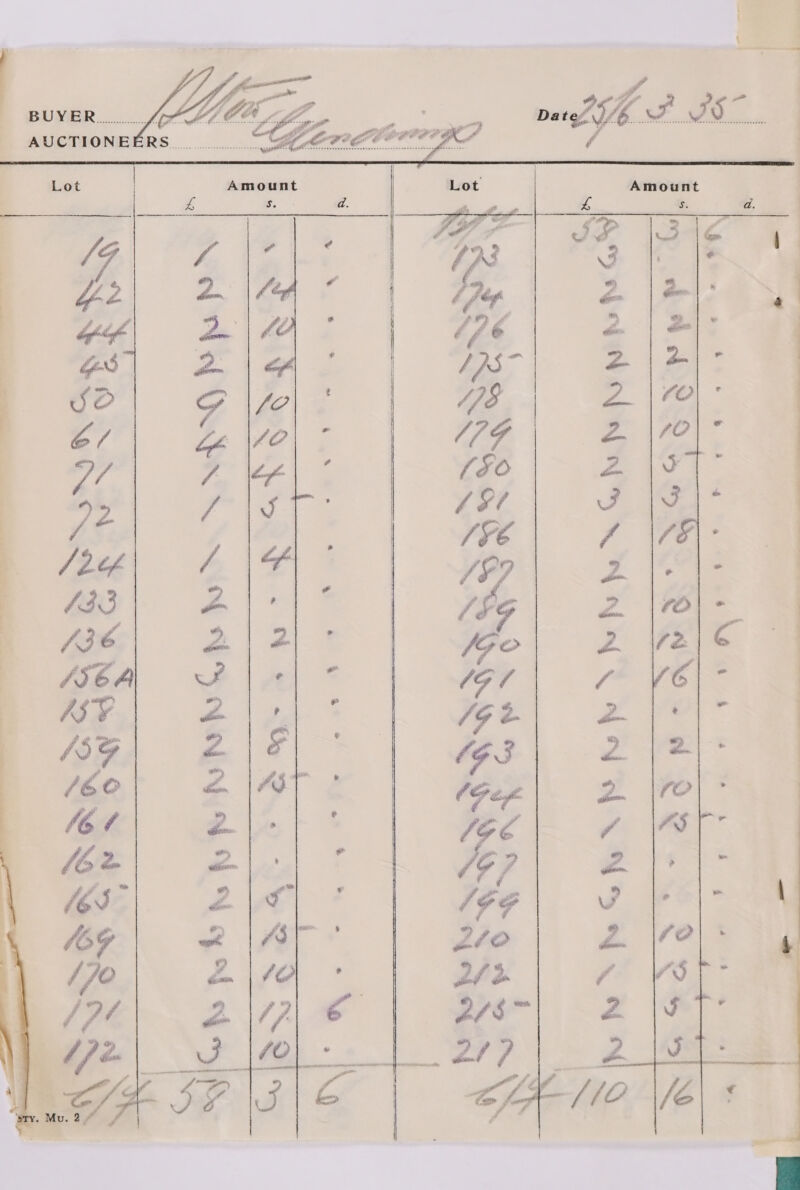 BUYER Alton
AUCTIONEERS Glendinings
Date 25/6 3 35
Lot Amount
£ s. d.
19 1 . .
42 2 14 .
44 2 10 .
45 2 4 .
50 9 10 .
61 4 10 .
71 1 4 .
72 1 5 - .
124 1 4 .
133 2 . .
136 2 2 .
156A 3 . .
158 2 . .
159 2 8 .
160 2 15 .
161 2 . .
162 2 . .
165 2 5 .
169 2 15 - .
170 2 10 .
171 2 17 6
172 3 10 .
C/F 58 3 6
STY. MU. 2
Lot Amount
£ s. d.
B/F 58 3 6
173 3 . .
174 2 2 .
176 2 2 .
175 2 2 .
178 2 10 .
179 2 10 .
180 2 5 .
181 3 3 .
186 1 18 .
187 2 . .
189 2 10 .
190 2 12 6
191 1 16 .
192 2 . .
193 2 2 .
194 2 10 .
196 1 15 .
197 2 . .
199 3 . .
210 2 10 .
212 1 15 .
215 2 5 .
217 2 5 .
C/F 110 16 .